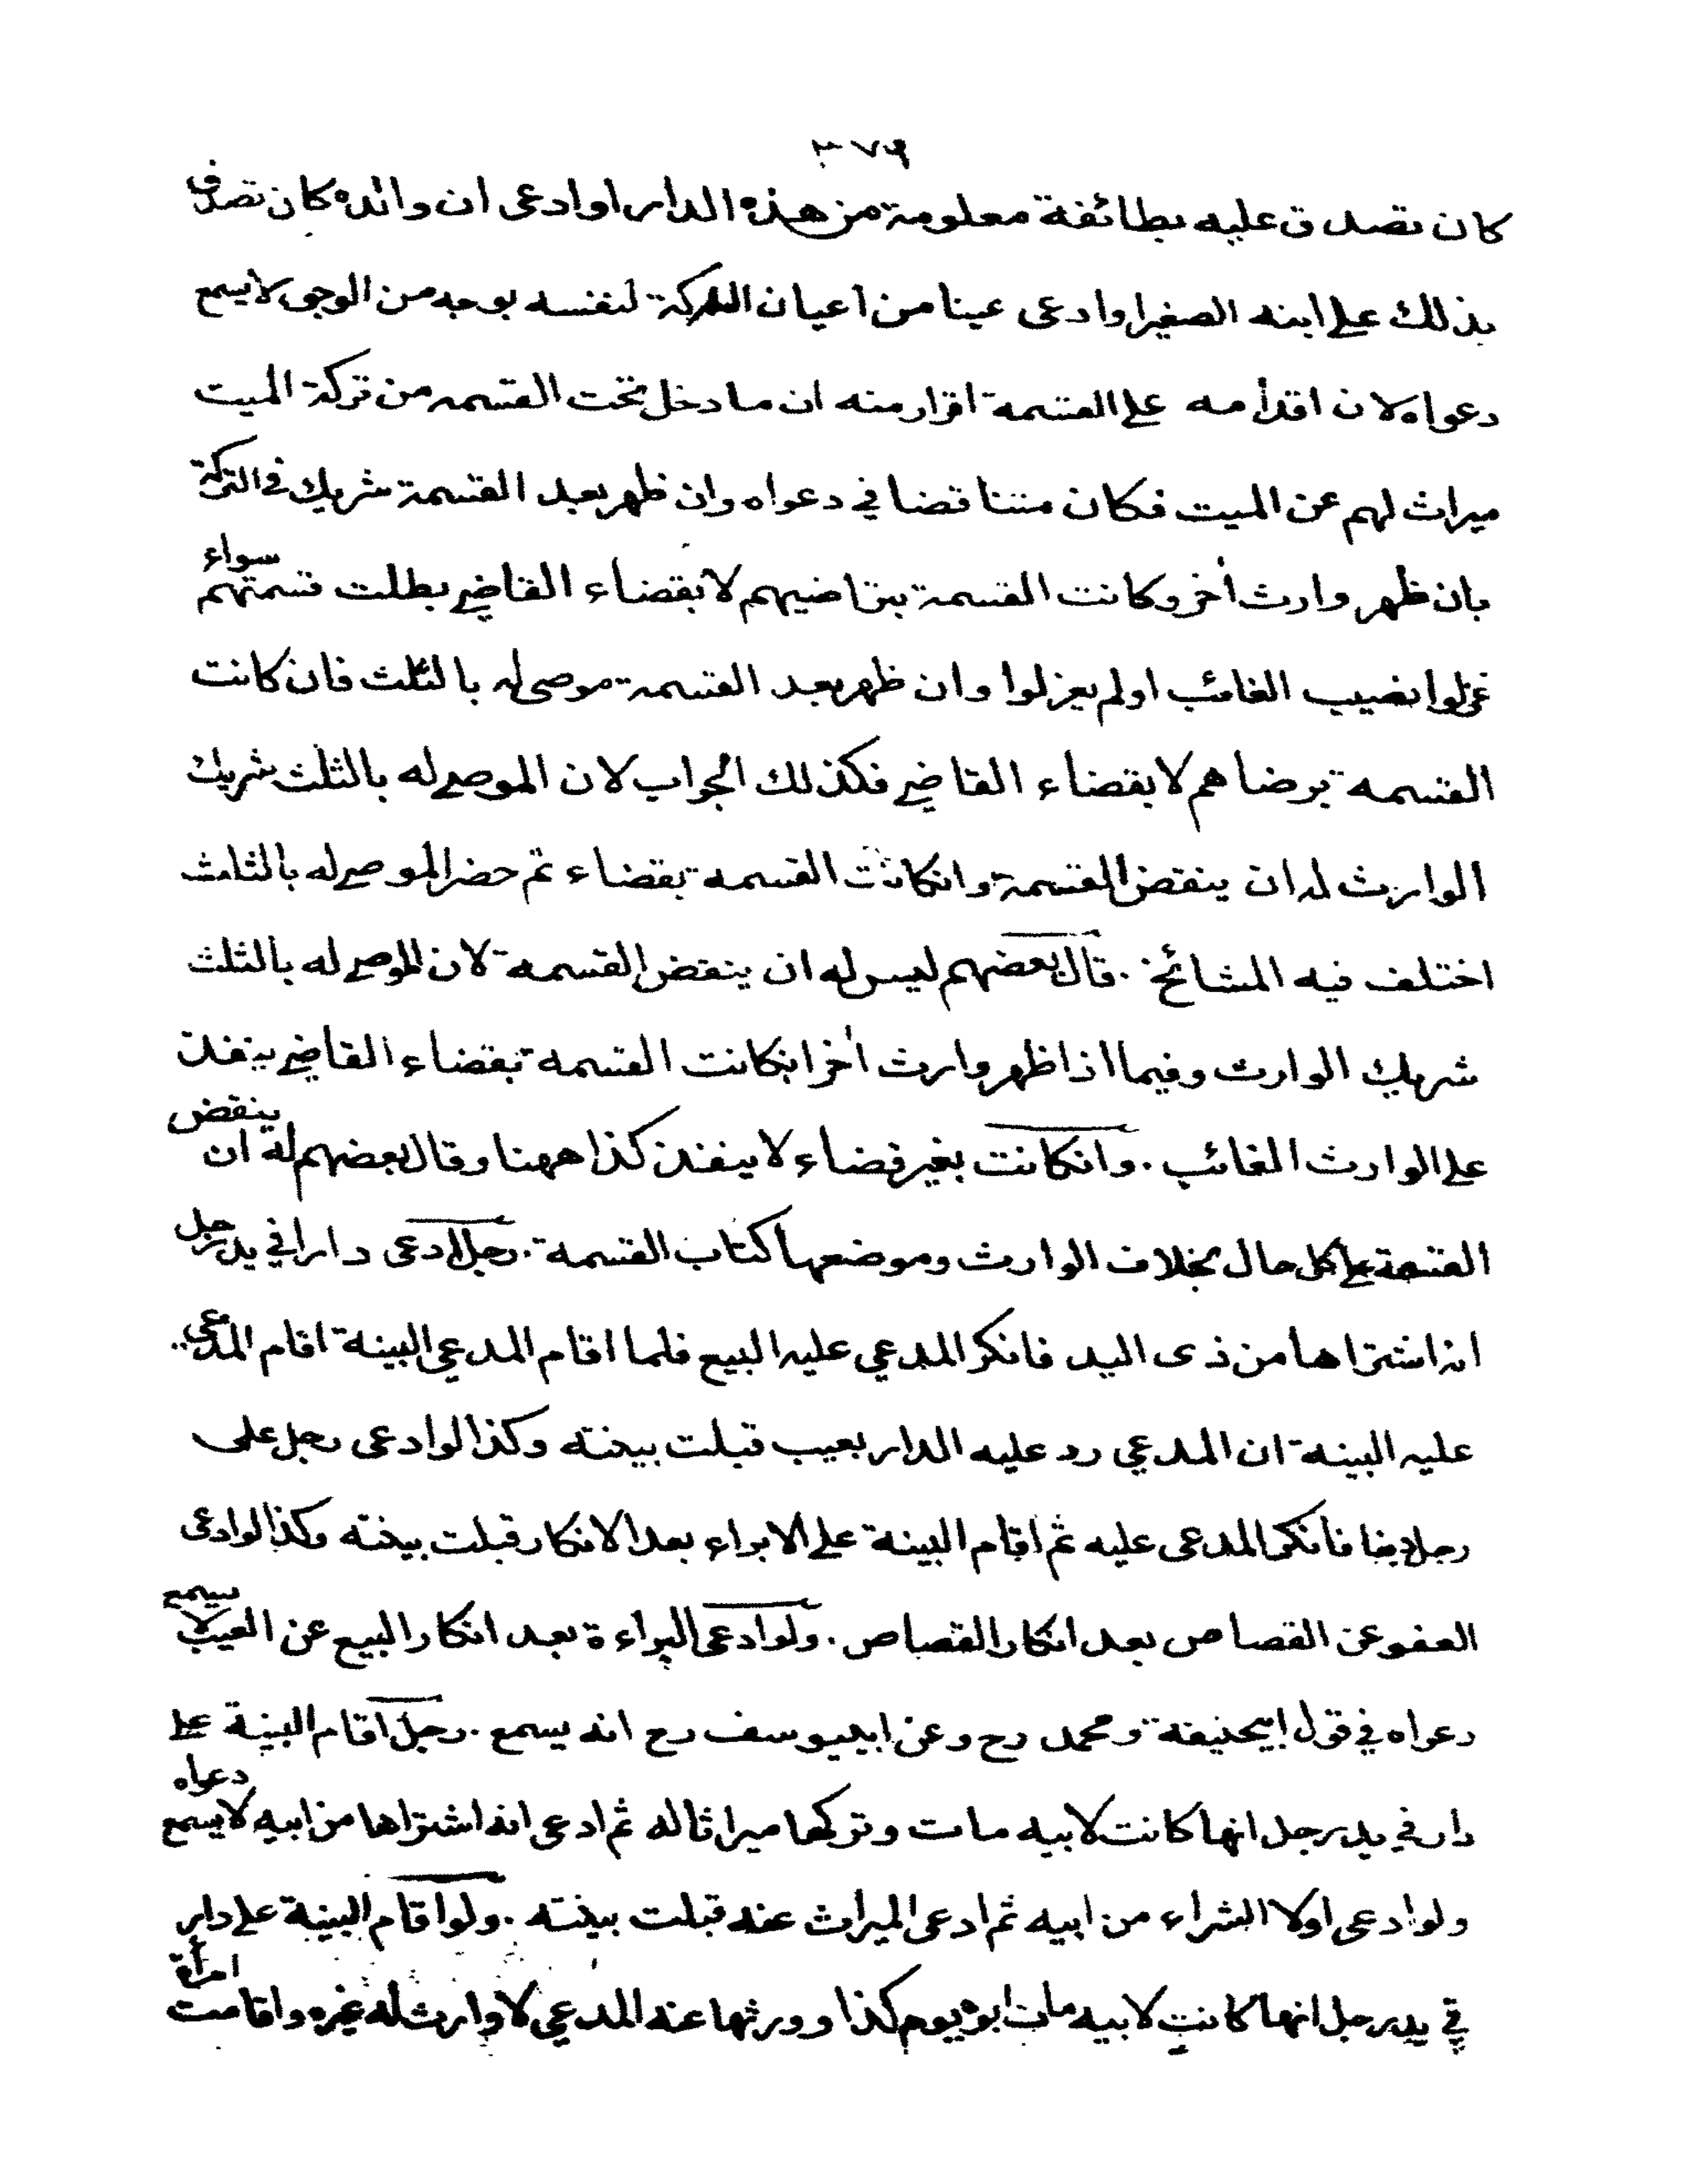 ٣٧٩
كان تصدق عليه بطائفة معلومة من هذه الدار او ادعى ان والده كان تصدق
بذلك على ابنه الصغير او ادعى عينا من اعيان التركة لنفسه بوجه من الوجوه لا يسمع
دعواه لان اقدامه على القسمة اقرار منه ان ما دخل تحت القسمه من تركة الميت
ميراث لهم عن الميت فكان متناقضا في دعواه وان ظهر بعد القسمة شريك في التركة
بان ظهر وارث اخر وكانت القسمة بتراضيهم لا بقضاء القاضي بطلت قسمتهم سواء
عزلوا نصيب الغائب او لم يعزلوا وان ظهر بعد القسمة موصى له بالثلث فان كانت
القسمه برضاهم لا بقضاء القاضي فكذلك الجواب لان الموصى له بالثلث شريك
الوارث له ان ينقض القسمة وانكانت القسمه بقضاء ثم حضر الموصى له بالثلث
اختلف فيه المشائخ . قال بعضهم ليس له ان ينقض القسمة لان الموصى له بالثلث
شريك الوارث وفيما اذا ظهر وارث اخر انكانت القسمه بقضاء القاضي ينفذ
على الوارث الغائب . وانكانت بغير قضاء لا ينفذ كذا ههنا وقال بعضهم له ان ينقض
القسمة على كل حال بخلاف الوارث وموضعها كتاب القسمة . رجل ادعى دارا في يد رجل
انه اشتراها من ذى اليد فانكر المدعي عليه البيع فلما اقام المدعي البينة اقام المدعى
عليه البينة ان المدعي رد عليه الدار بعيب قبلت بينته وكذا لو ادعى رجل على
رجل دينا فانكر المدعى عليه ثم اقام البينة على الابراء بعد الانكار قبلت بينته وكذا لو ادعى
العفو عن القصاص بعد انكار القصاص . ولو ادعى البراءة بعد انكار البيع عن العيب لا يسمع
دعواه في قول ابيحنيفة ومحمد رح وعن ابييوسف رح انه يسمع . رجل اقام البينة على
دار في يد رجل انها كانت لابيه مات وتركها ميراثا له ثم ادعى انه اشتراها من ابيه لا يسمع دعواه
ولو ادعى اولا الشراء من ابيه ثم ادعى الميراث عنه قبلت بينته . ولو اقام البينة على دار
في يد رجل انها كانت لابيه مات ابوه يوم كذا وورثها عنه المدعي لا وارث له غيره واقامت امرأة